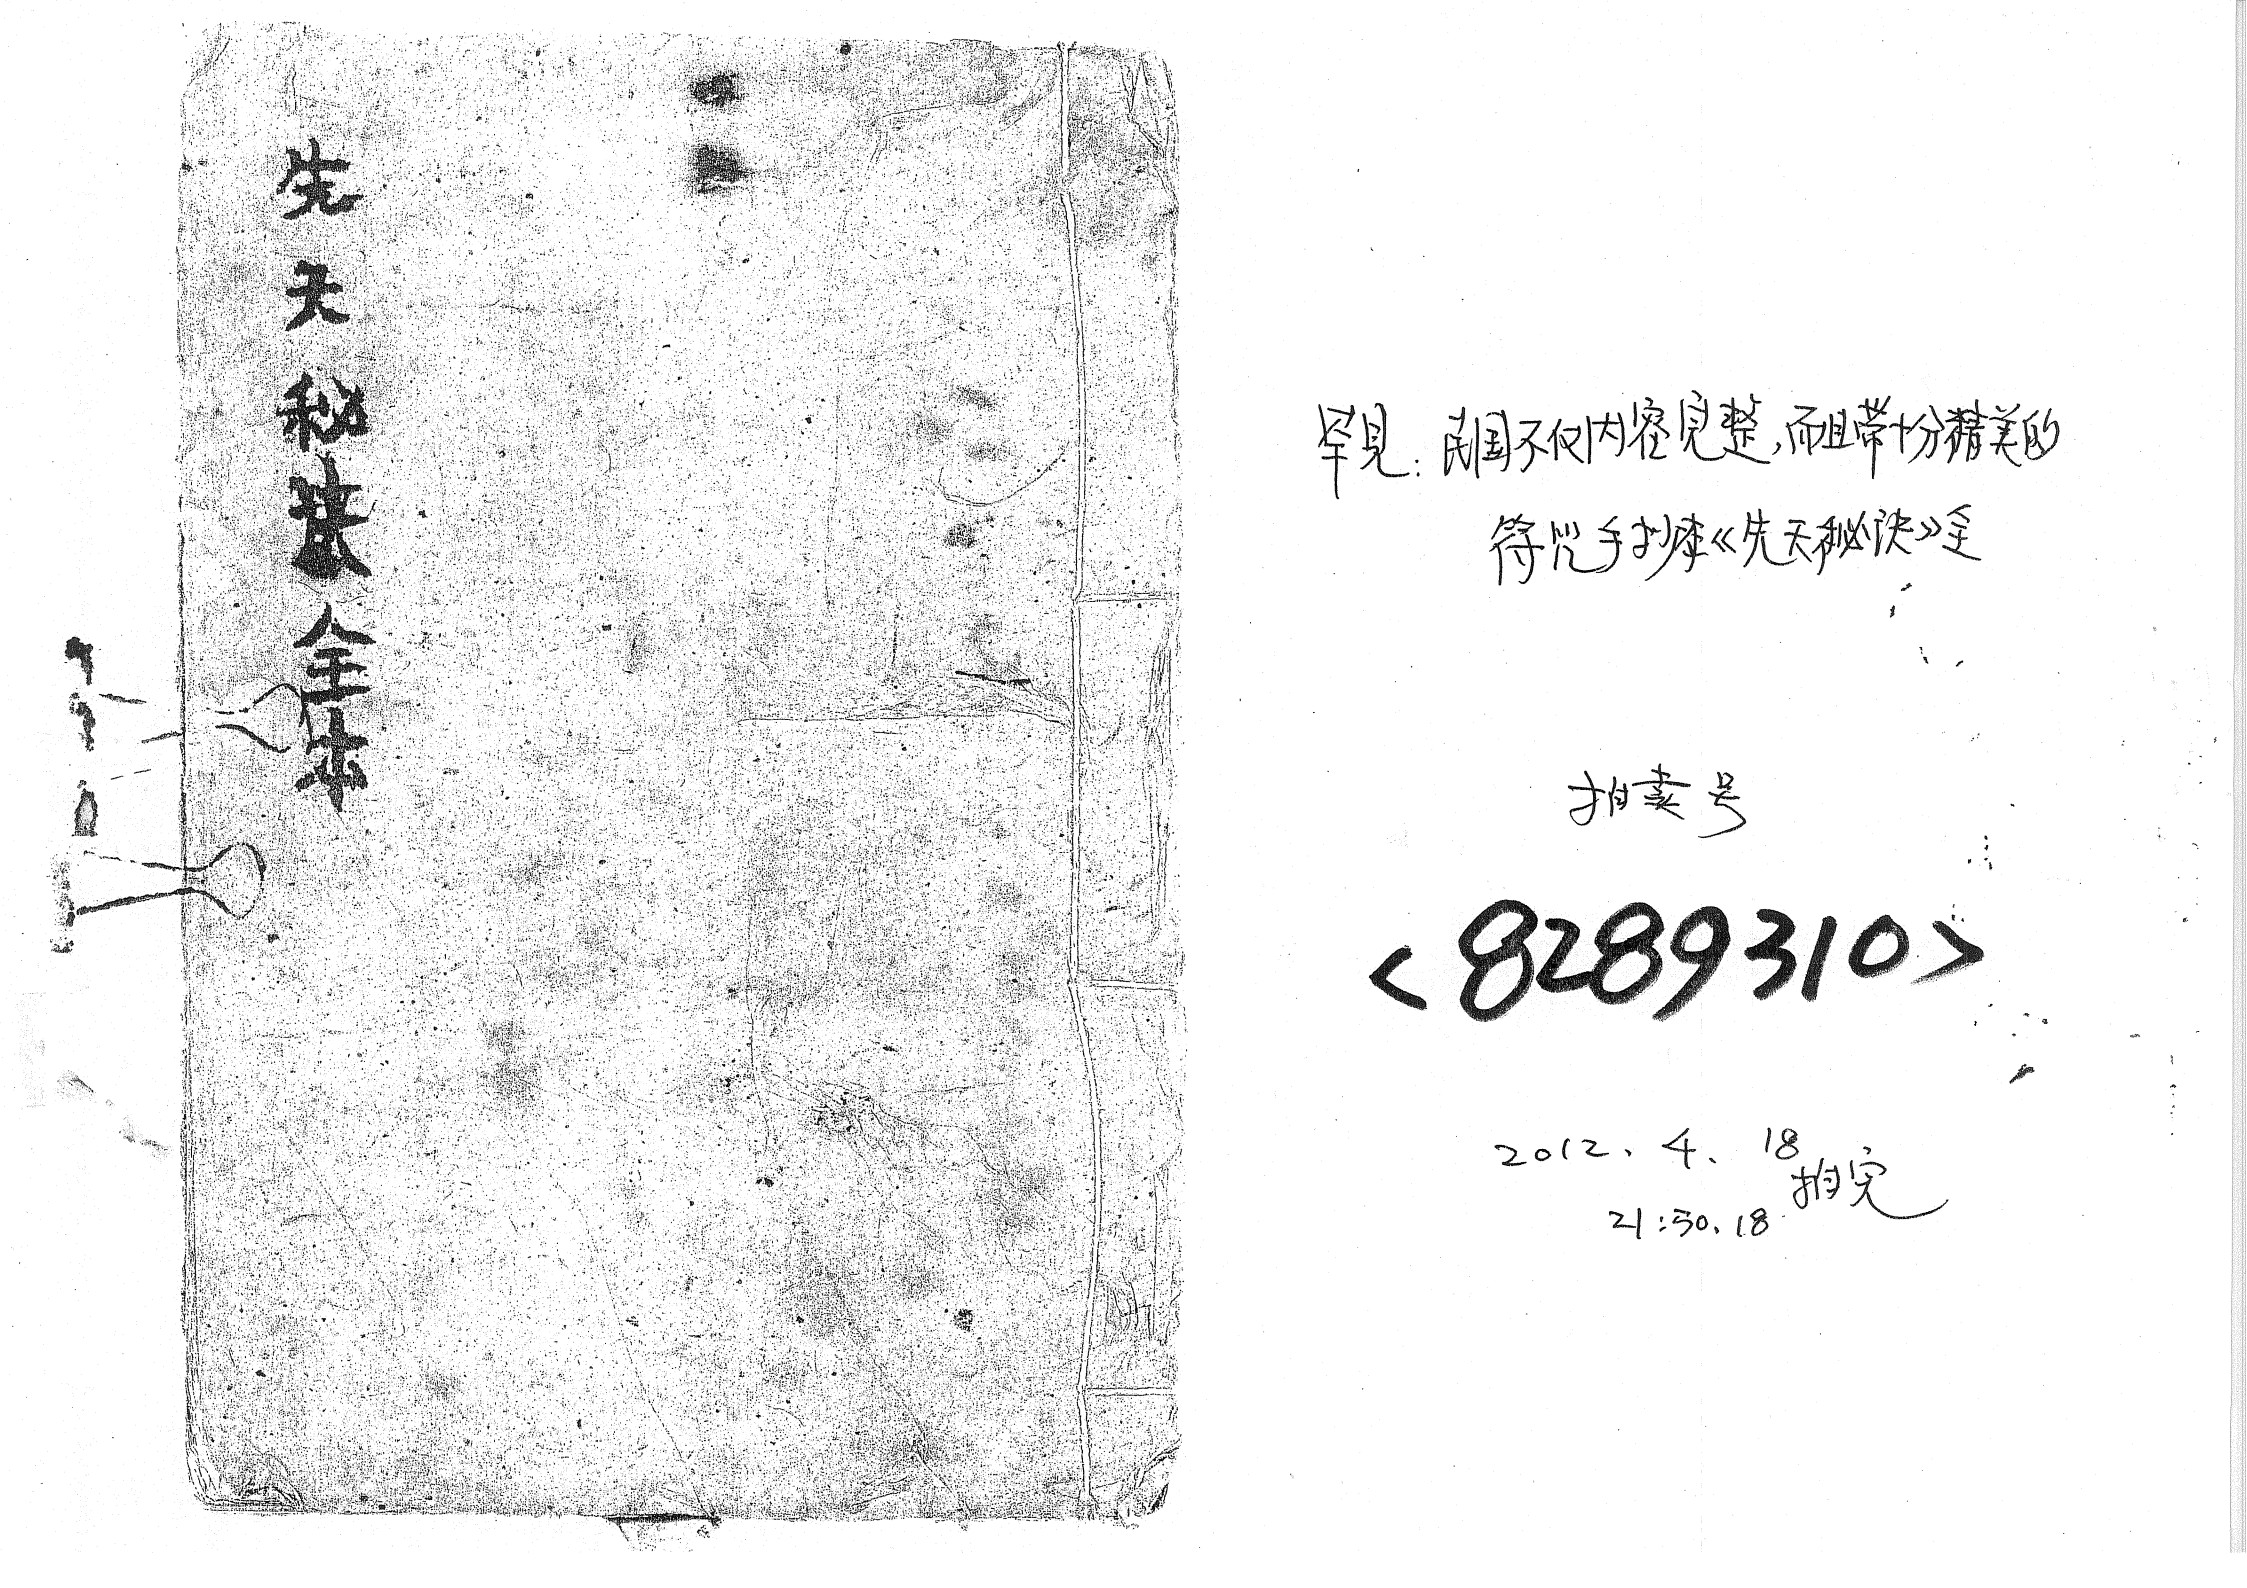 先天秘㫁全本
罕见：民国不仅内容完整，而且带十分精美的
符咒手抄本《先天秘诀》全
拍卖号
<8289310>
2012. 4. 18
拍完
21:50.18